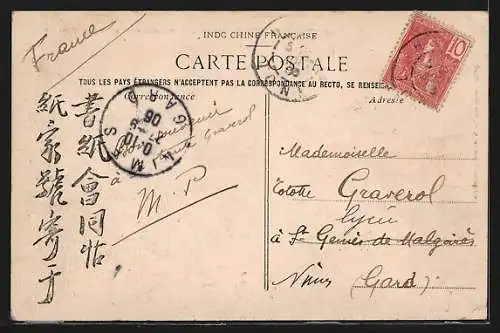 France
INDO CHINE FRANÇAISE
CARTE POSTALE
TOUS LES PAYS ÉTRANGERS N'ACCEPTENT PAS LA CORRESPONDANCE AU RECTO, SE RENSEIGN
Correspondance
Adresse
10
GARD
06
書紙會同帖
紙家號寄于
souvenir
à Graverol
M. P
Mademoiselle
Totote Graverol
lycée
à St Geniès de Malgoirès
Nîmes (Gard)